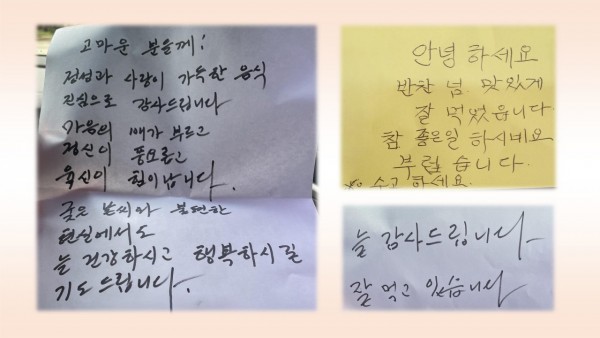 고마운 분들께!
정성과 사랑이 가득한 음식
진심으로 감사드립니다
마음의 배가 부르고
정신이 풍요롭고
육신이 힘이납니다.
궂은 날씨와 불편한
현실에서도
늘 건강하시고 행복하시길
기도드립니다.
안녕하세요
반찬 넘. 맛있게
잘 먹었읍니다
참 좋은일 하시네요
부럽습니다.
수고하세요.
늘 감사드립니다
잘 먹고 있습니다